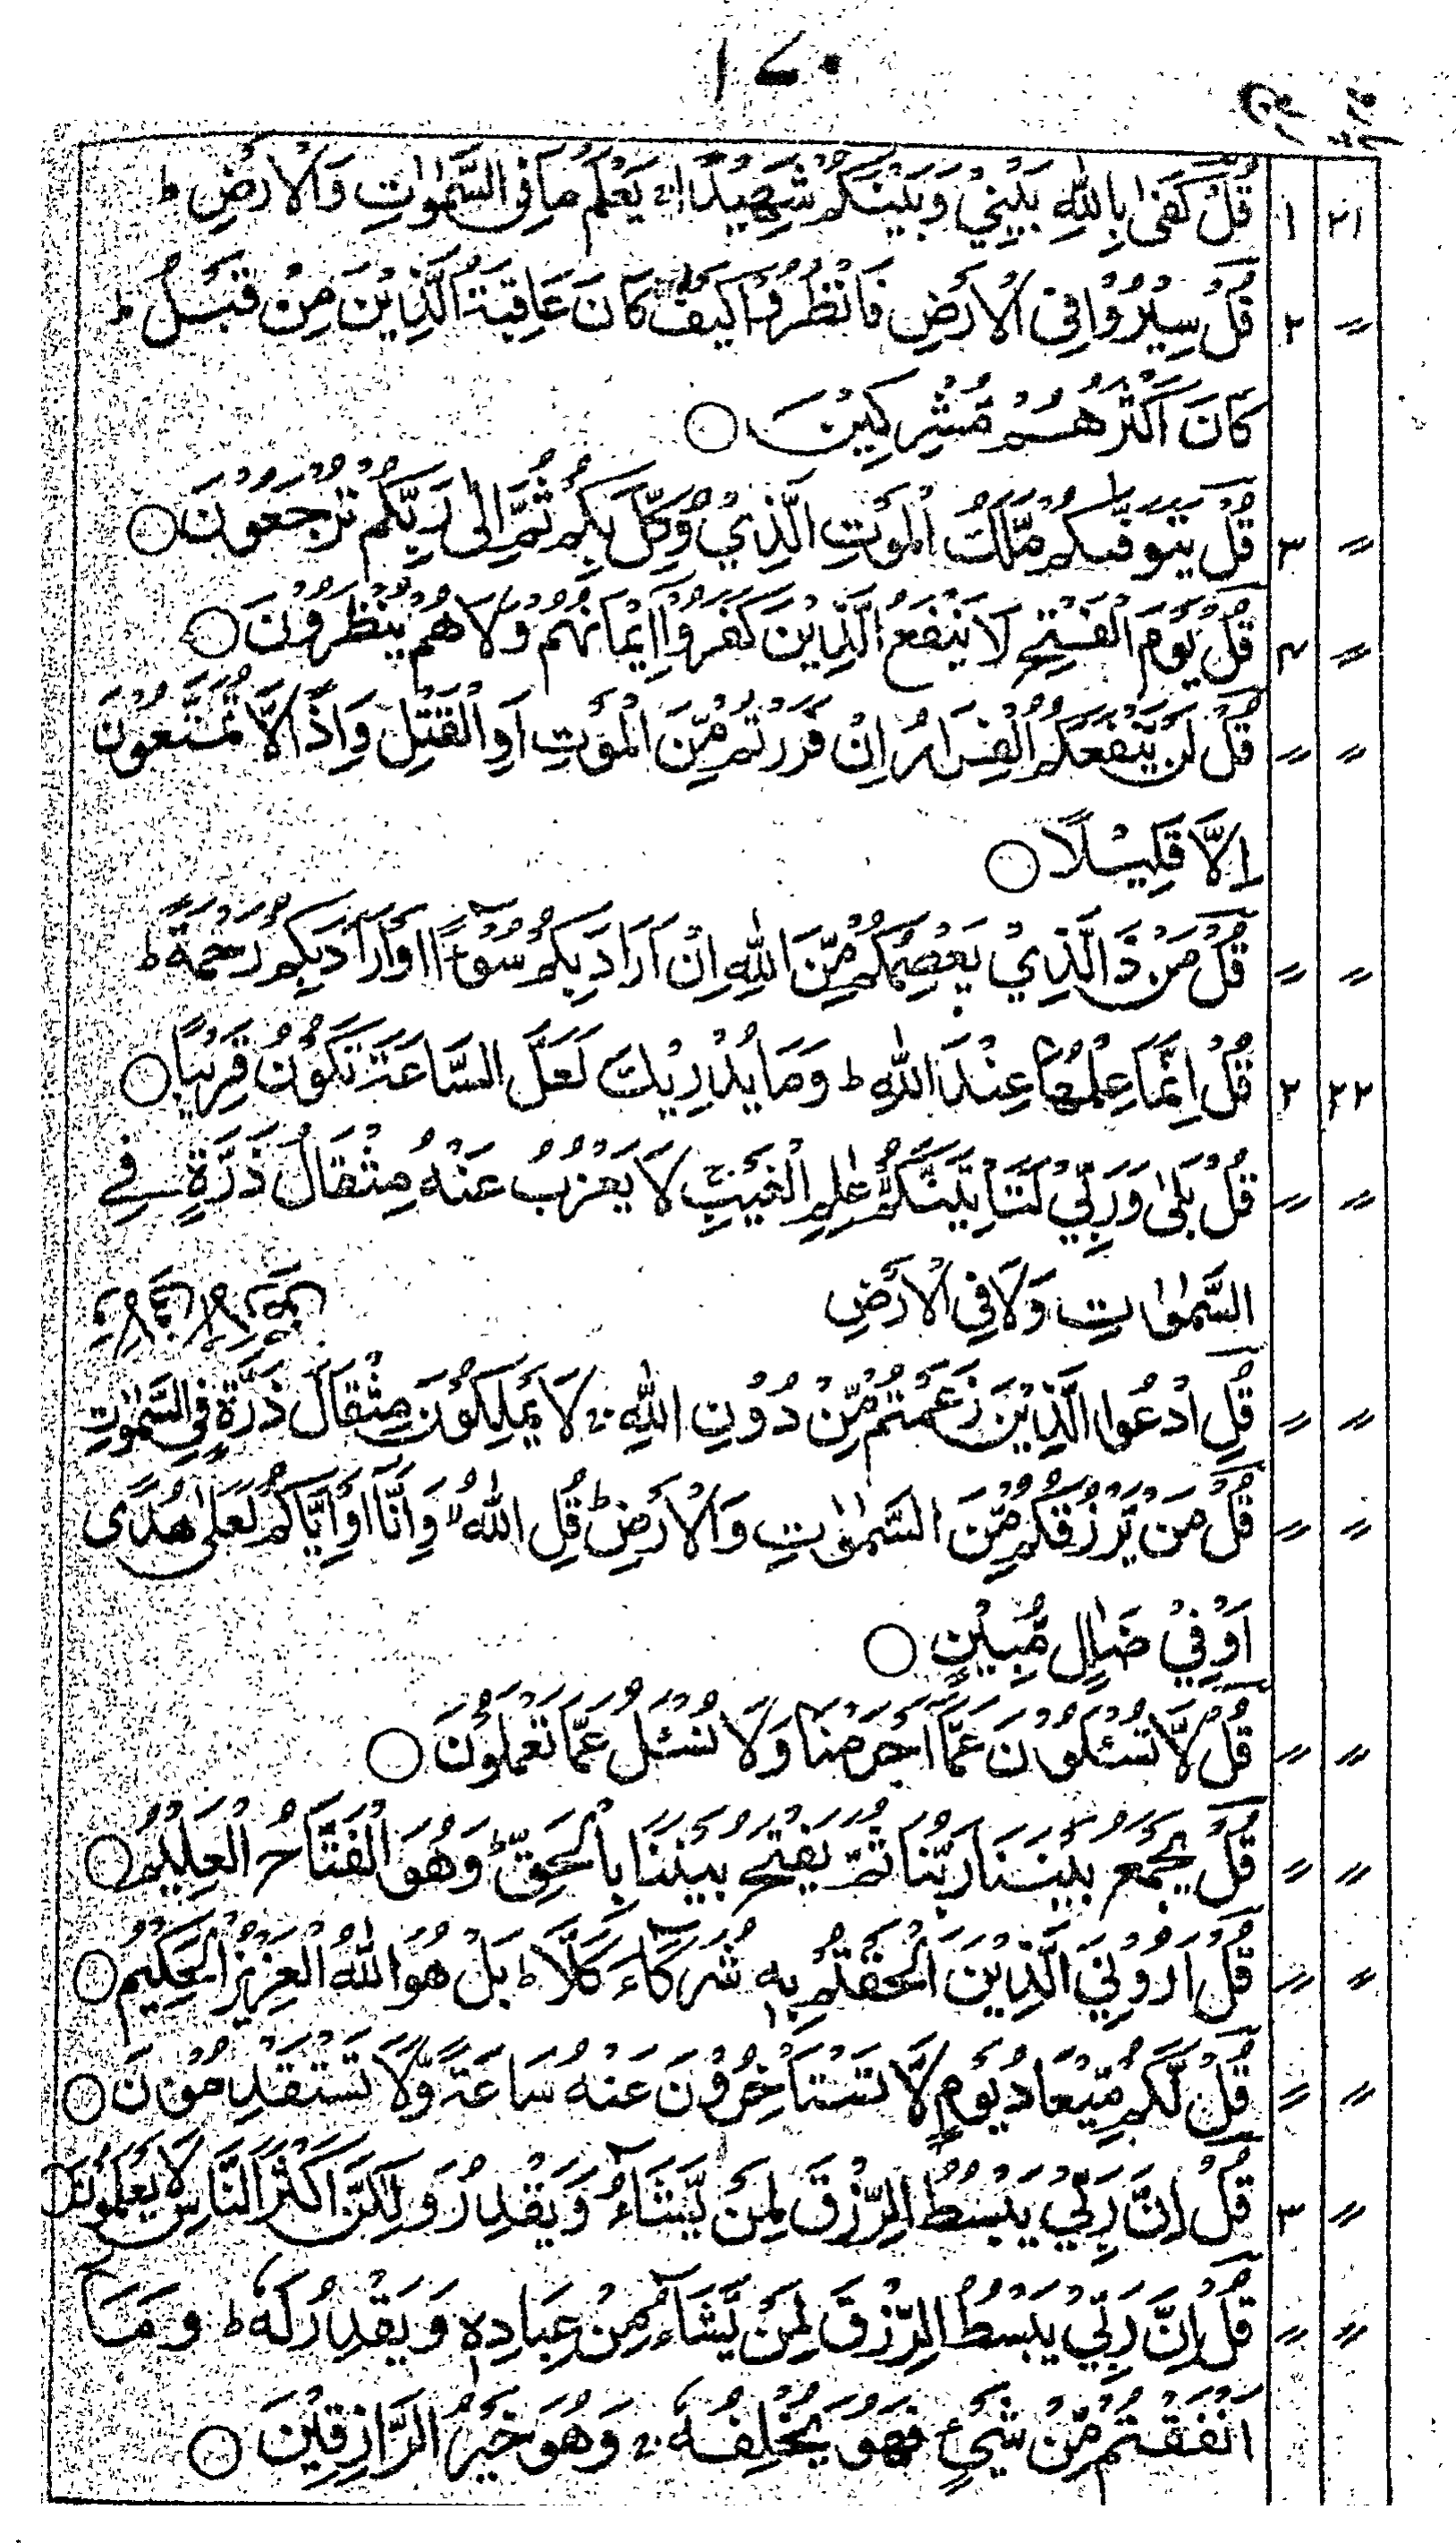 ۱۷۰
قُلْ كَفٰى بِاللّٰهِ بَيْنِيْ وَبَيْنَكُمْ شَهِيْدًا ۚ يَعْلَمُ مَا فِى السَّمٰوٰتِ وَالْاَرْضِ ط ۱ ۲۱
قُلْ سِيْرُوْا فِى الْاَرْضِ فَانْظُرُوْا كَيْفَ كَانَ عَاقِبَةُ الَّذِيْنَ مِنْ قَبْلُ ط ۲ 〃
كَانَ اَكْثَرُهُمْ مُّشْرِكِيْنَ ○
قُلْ يَتَوَفّٰىكُمْ مَّلَكُ الْمَوْتِ الَّذِيْ وُكِّلَ بِكُمْ ثُمَّ اِلٰى رَبِّكُمْ تُرْجَعُوْنَ ○ ۳ 〃
قُلْ يَوْمَ الْفَتْحِ لَا يَنْفَعُ الَّذِيْنَ كَفَرُوْۤا اِيْمَانُهُمْ وَلَا هُمْ يُنْظَرُوْنَ ○ ۴ 〃
قُلْ لَّنْ يَّنْفَعَكُمُ الْفِرَارُ اِنْ فَرَرْتُمْ مِّنَ الْمَوْتِ اَوِ الْقَتْلِ وَاِذًا لَّا تُمَتَّعُوْنَ 〃 〃
اِلَّا قَلِيْلًا ○
قُلْ مَنْ ذَا الَّذِيْ يَعْصِمُكُمْ مِّنَ اللّٰهِ اِنْ اَرَادَ بِكُمْ سُوْٓءًا اَوْ اَرَادَ بِكُمْ رَحْمَةً ط 〃 〃
قُلْ اِنَّمَا عِلْمُهَا عِنْدَ اللّٰهِ ط وَمَا يُدْرِيْكَ لَعَلَّ السَّاعَةَ تَكُوْنُ قَرِيْبًا ○ ۲ ۲۲
قُلْ بَلٰى وَرَبِّيْ لَتَاْتِيَنَّكُمْ عٰلِمِ الْغَيْبِ لَا يَعْزُبُ عَنْهُ مِثْقَالُ ذَرَّةٍ فِي 〃 〃
السَّمٰوٰتِ وَلَا فِى الْاَرْضِ
قُلِ ادْعُوا الَّذِيْنَ زَعَمْتُمْ مِّنْ دُوْنِ اللّٰهِ ۚ لَا يَمْلِكُوْنَ مِثْقَالَ ذَرَّةٍ فِى السَّمٰوٰتِ 〃 〃
قُلْ مَنْ يَّرْزُقُكُمْ مِّنَ السَّمٰوٰتِ وَالْاَرْضِ ط قُلِ اللّٰهُ ۙ وَاِنَّاۤ اَوْ اِيَّاكُمْ لَعَلٰى هُدًى 〃 〃
اَوْ فِيْ ضَلٰلٍ مُّبِيْنٍ ○
قُلْ لَّا تُسْـَٔلُوْنَ عَمَّاۤ اَجْرَمْنَا وَلَا نُسْـَٔلُ عَمَّا تَعْمَلُوْنَ ○ 〃 〃
قُلْ يَجْمَعُ بَيْنَنَا رَبُّنَا ثُمَّ يَفْتَحُ بَيْنَنَا بِالْحَقِّ ط وَهُوَ الْفَتَّاحُ الْعَلِيْمُ ○ 〃 〃
قُلْ اَرُوْنِيَ الَّذِيْنَ اَلْحَقْتُمْ بِهٖ شُرَكَآءَ كَلَّا ط بَلْ هُوَ اللّٰهُ الْعَزِيْزُ الْحَكِيْمُ ○ 〃 〃
قُلْ لَّكُمْ مِّيْعَادُ يَوْمٍ لَّا تَسْتَاْخِرُوْنَ عَنْهُ سَاعَةً وَّلَا تَسْتَقْدِمُوْنَ ○ 〃 〃
قُلْ اِنَّ رَبِّيْ يَبْسُطُ الرِّزْقَ لِمَنْ يَّشَآءُ وَيَقْدِرُ وَلٰكِنَّ اَكْثَرَ النَّاسِ لَا يَعْلَمُوْنَ ○ ۳ 〃
قُلْ اِنَّ رَبِّيْ يَبْسُطُ الرِّزْقَ لِمَنْ يَّشَآءُ مِنْ عِبَادِهٖ وَيَقْدِرُ لَهٗ ط وَمَاۤ 〃 〃
اَنْفَقْتُمْ مِّنْ شَيْءٍ فَهُوَ يُخْلِفُهٗ ۚ وَهُوَ خَيْرُ الرَّازِقِيْنَ ○